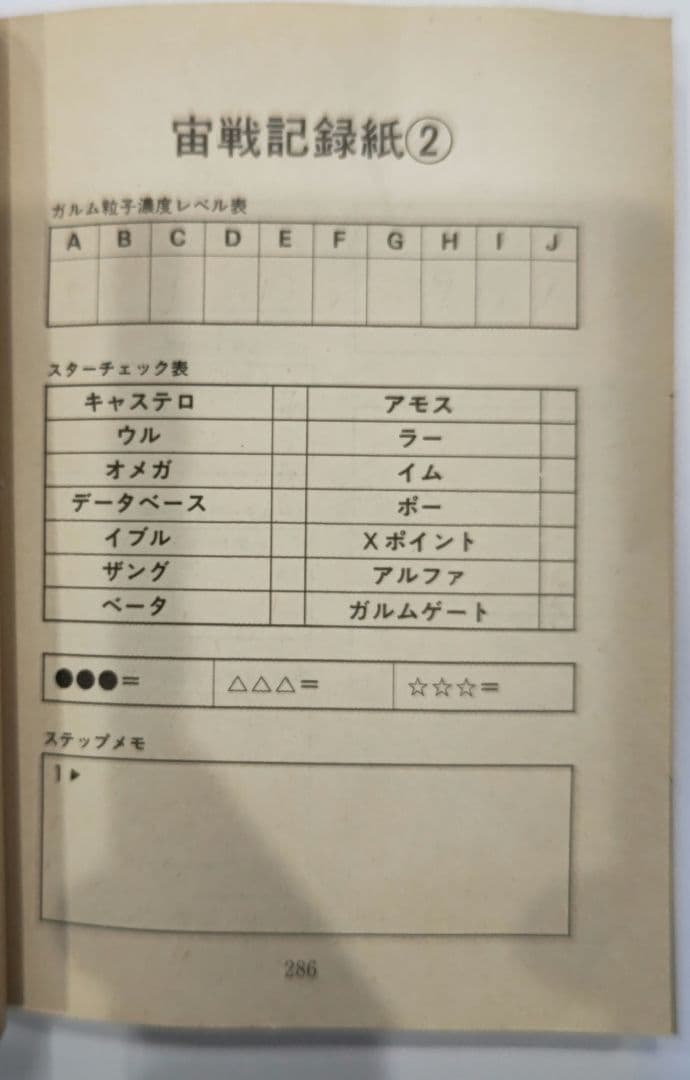 宙戦記録紙②
ガルム粒子濃度レベル表
A B C D E F G H I J
スターチェック表
キャステロ アモス
ウル ラー
オメガ イム
データベース ポー
イブル Xポイント
ザング アルファ
ベータ ガルムゲート
●●●= △△△= ☆☆☆=
ステップメモ
1▶
286